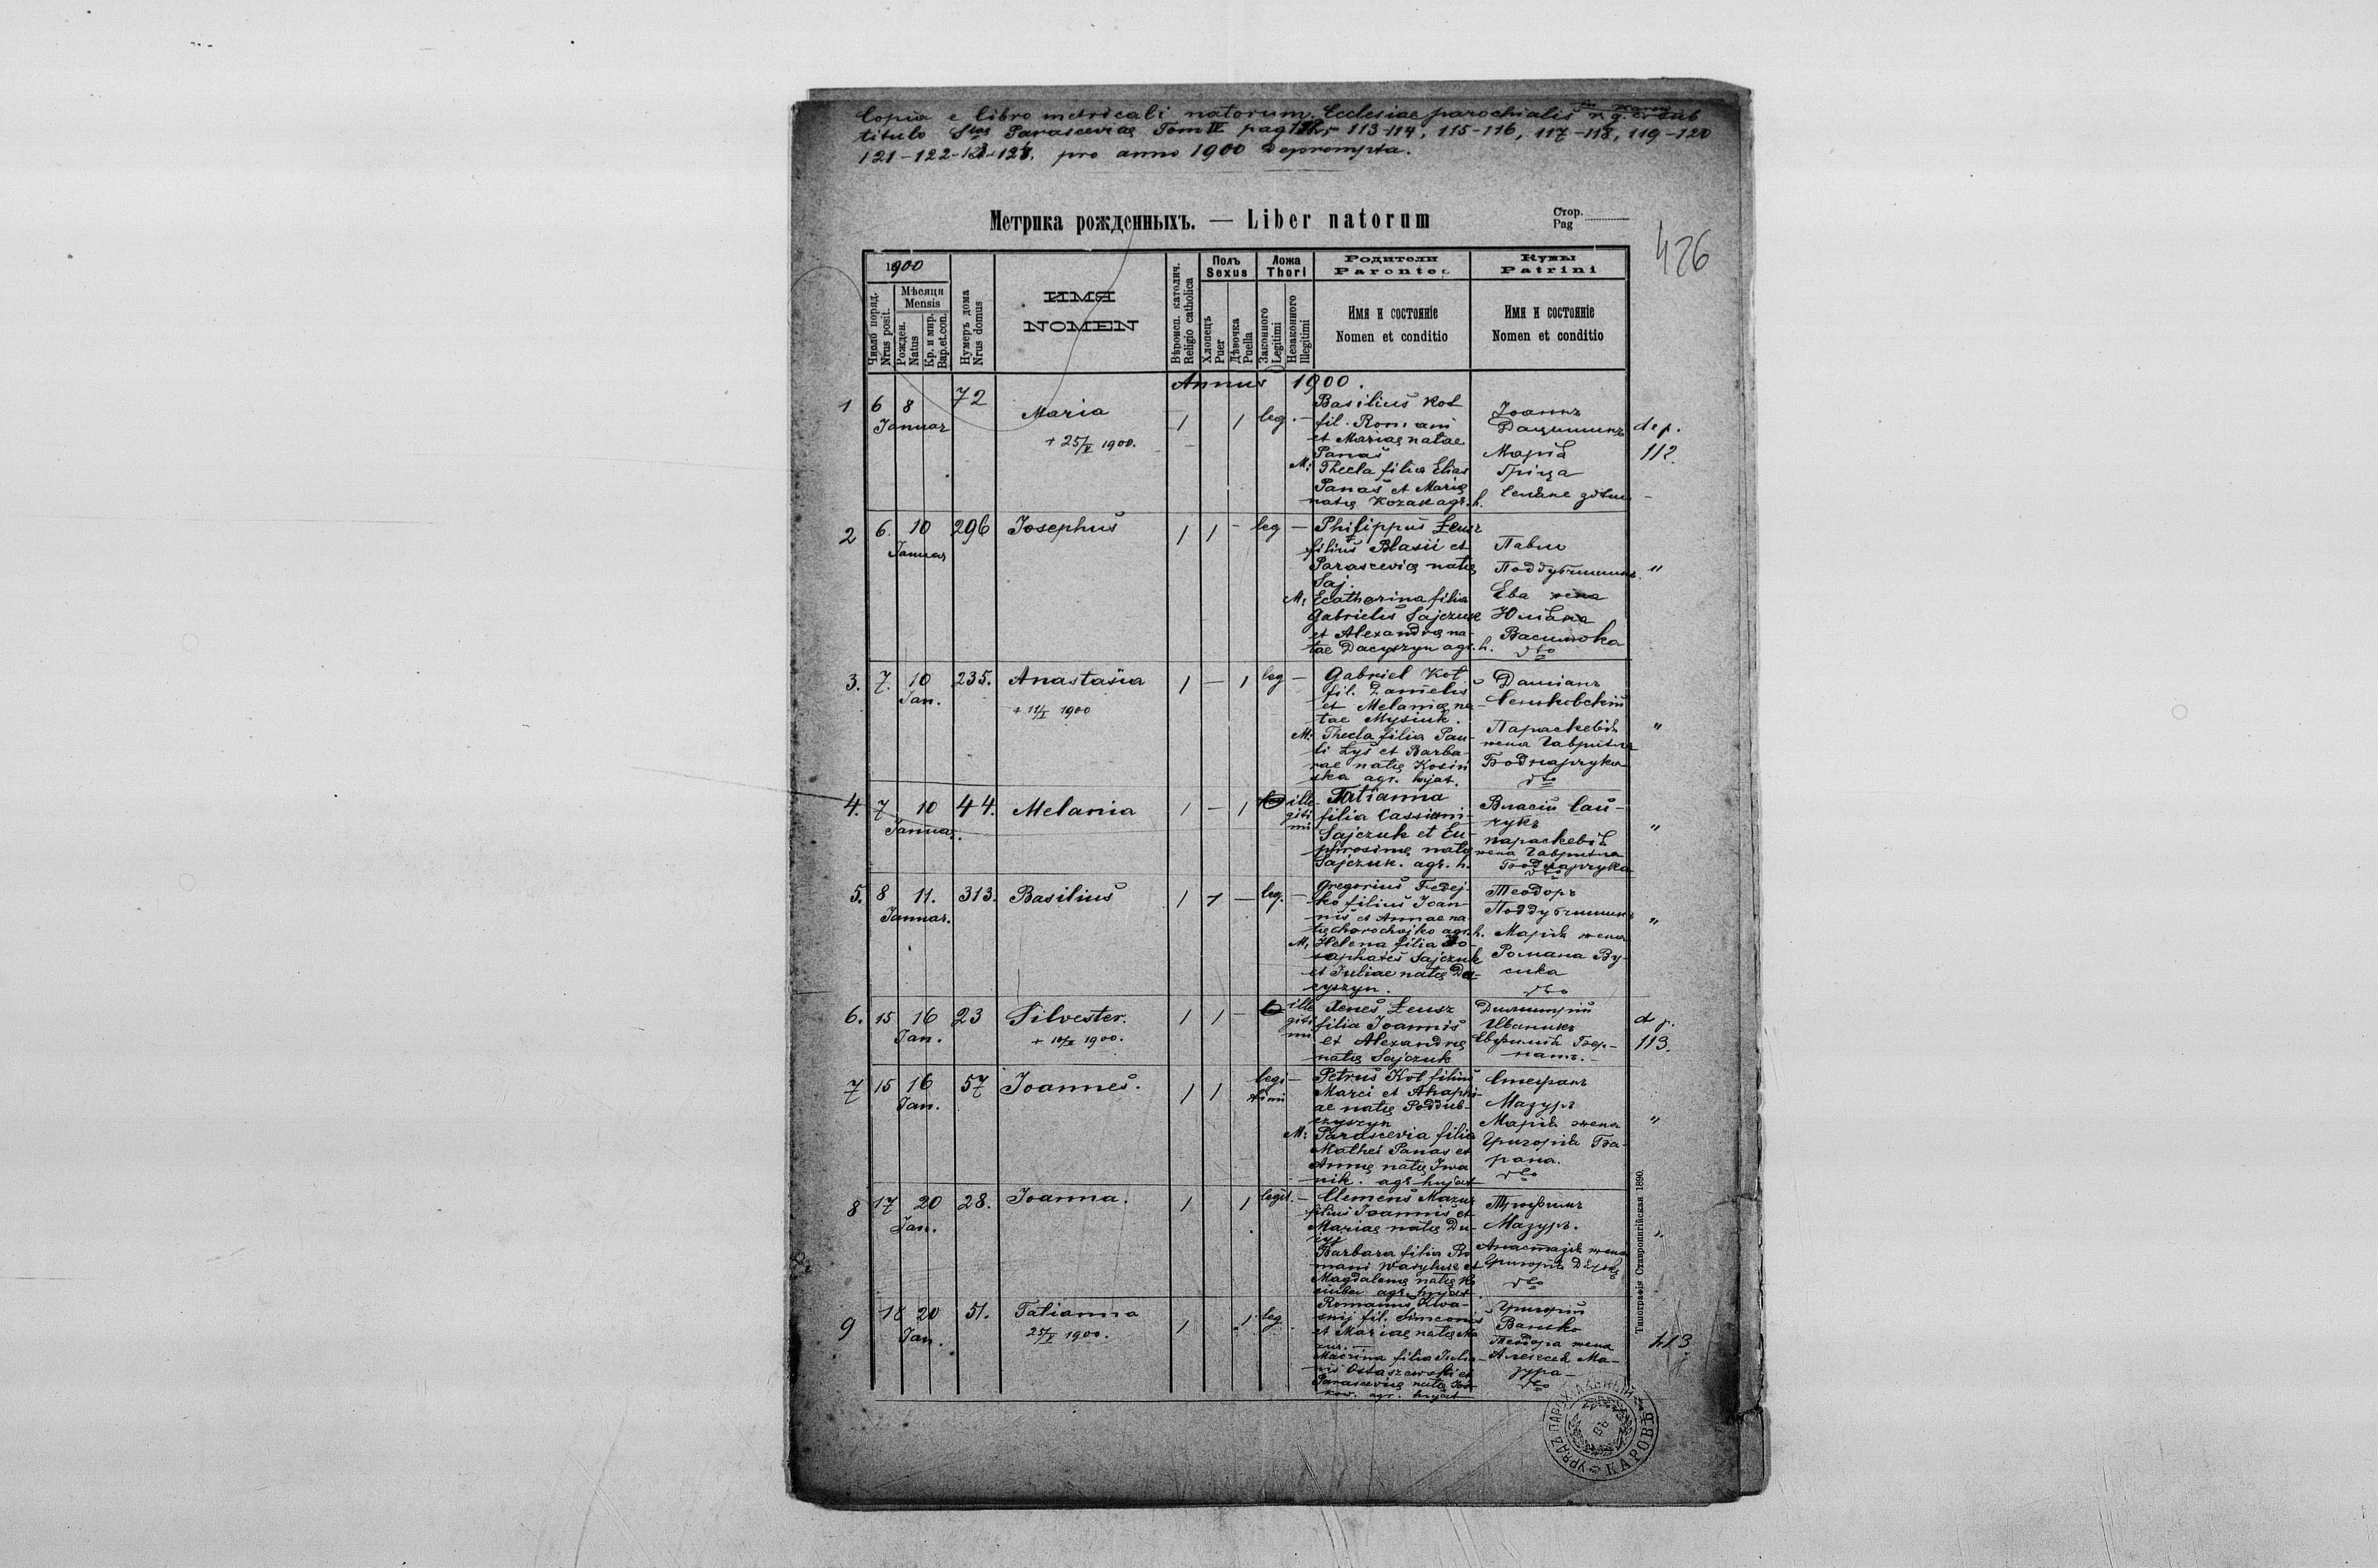 Copia e libro metricali natorum. Ecclesiae parochialis
titulo Stae Parasceviae Tom IV pag 113-114, 115-116, 117-118, 119-120
121-122- pro anno 1900 deprompta.
Метрика рожденныхъ. — Liber natorum
Стор.
Pag
426
1900
Мѣсяця
Mensis
Число поряд.
Nrus posit.
Рожден.
Natus
Кр. и мир.
Bap.et.con.
Нумеръ дома
Nrus domus
ИМЯ
NOMEN
Вѣроисп. католич.
Religio catholica
Полъ
Sexus
Хлопецъ
Puer
Дѣвочка
Puella
Ложа
Thori
Законного
Legitimi
Незаконного
Illegitimi
Родители
Parentes
Имя и состояніе
Nomen et conditio
Кумы
Patrini
Имя и состояніе
Nomen et conditio
Annus 1900.
1 6 8 72
Januar
Maria
+ 25/V 1900.
1 1 leg. —
Basilius Kot
fil. Romani
et Mariae natae
Panas
M: Thecla filia Elias
Panas et Marię
natę Kozak agr. h.
Іоаннъ
Дацишинъ
Марія
Гріца
dep.
112.
2 6. 10 296 Josephus
Januar
1 1 — leg —
Philippus Łeusz
filius Blasii et
Parascevię natę
Saj.
M: Ecatherina filia
Gabrielis Sajczuk
et Alexandrę na-
tae Dacyszyn agr. h.
Павло
Поддубчишинъ
Ева жена
Юліана
Василюка
dto
"
3. 7. 10 235. Anastasia
Jan.
+ 11/I 1900
1 — 1 leg —
Gabriel Kot
fil. Danielis
et Melanię na-
tae Mysiuk.
M: Thecla filia Pau-
li Łyś et Barba-
rae natę Kosiń
ska agr. hujat.
Даміанъ
Параскевія
жена Гавриила
Боднарчука
dto
"
4. 7 10 44. Melania
Januar.
1 — 1 ille
giti
mi
Tatianna
filia Cassiani
Sajczuk et Eu-
phrosinę natę
Sajczuk. agr. h.
Власій Сай-
чукъ
Параскевія
жена Гавриила
Боднарчука
dto
"
5. 8 11. 313. Basilius
Januar.
1 1 — leg. —
Gregorius Fedej-
ko filius Joan-
nis et Annae na-
tę Chorochojko agr. h.
M: Helena filia Jo-
saphatis Sajczuk
et Juliae natę Da-
cyszyn.
Теодоръ
Поддубчишинъ
Марія жена
Романа Ву-
сика
dto
"
6. 15 16 23 Silvester.
Jan.
+ 10/II 1900.
1 1 — ille
giti
mi
Xenes Łeusz
filia Joannis
et Alexandrę
natę Sajczuk
Димитрій
Иваникъ
Евфимія Бер-
натъ.
dp.
113.
7 15 16 57 Joannes.
Jan.
1 1 legi
timi —
Petrus Kot filius
Marci et Ahaphi-
ae natę Poddub-
czyszyn
M: Parascevia filia
Mathei Panas et
Annę natę Iwa
nik. agr. hujat
Стефанъ
Мазуръ
Марія жена
Григорія Ба-
рана.
dto
"
8 17 20 28. Joanna.
Jan.
1 1 legit. —
Clemens Mazur
filius Joannis et
Mariae natę Du-
Barbara filia Ro
mani Wasyluk et
Magdalenę natę Ko
ciuba agr. hujat
Трофимъ
Мазуръ.
Анастазія жена
Григорія
dto
"
9 18 20 51. Tatianna
Jan.
25/V 1900.
1 1 leg.
Romanus Kwa-
snij fil. Simeonis
et Mariae natę Ma
zur.
Macrina filia Julia-
nis Ostaszewski et
Parascevię natę
kow. agr. hujat
Григорій
Ванько
Теодора жена
Алексея Ма-
зура
dto
113.
Типографія Ставропигійская 1890.
УРЯДЪ ПАРОХІАЛЬНЫЙ
ВЪ
КАРОВѢ